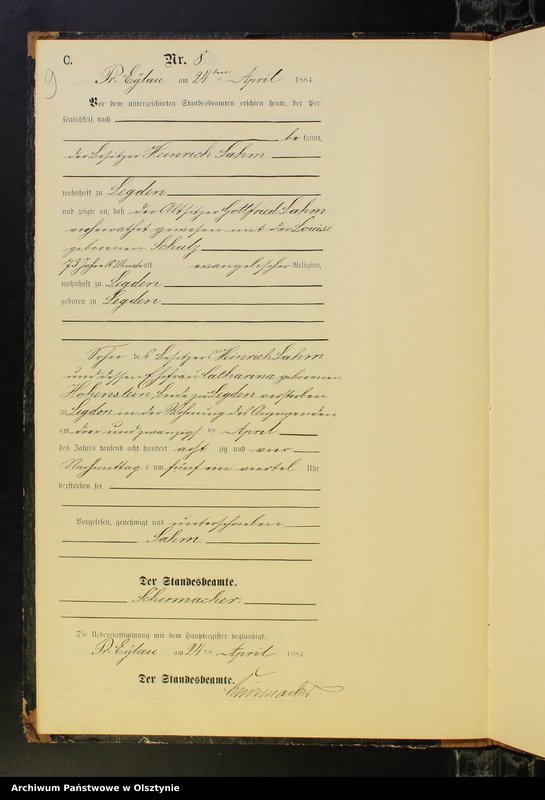 C.
Nr. 8
9
Pr. Eylau am 24ten April 1884.
Vor dem unterzeichneten Standesbeamten erschien heute, der Per-
sönlichkeit nach
be kannt,
der Besitzer Heinrich Sahm
wohnhaft zu Legden
und zeigte an, daß der Altsitzer Gottfried Sahm
verheirathet gewesen mit der Louise
geborenen Schulz
73 Jahre Monate alt evangelischer Religion,
wohnhaft zu Legden
geboren zu Legden
Sohn des Besitzers Heinrich Sahm
und dessen Ehefrau Catharina geborenen
Hohenstein, beide zu Legden verstorben
zu Legden in der Wohnung des Anzeigenden
am drei und zwanzigsten April
des Jahres tausend acht hundert acht zig und vier
Nachmittags um fünf ein viertel Uhr
verstorben sei
Vorgelesen, genehmigt und unterschrieben
Sahm
Der Standesbeamte.
Schirmacher.
Die Uebereinstimmung mit dem Hauptregister beglaubigt.
Pr. Eylau am 24ten April 1884.
Der Standesbeamte.
Schirmacher
Archiwum Państwowe w Olsztynie